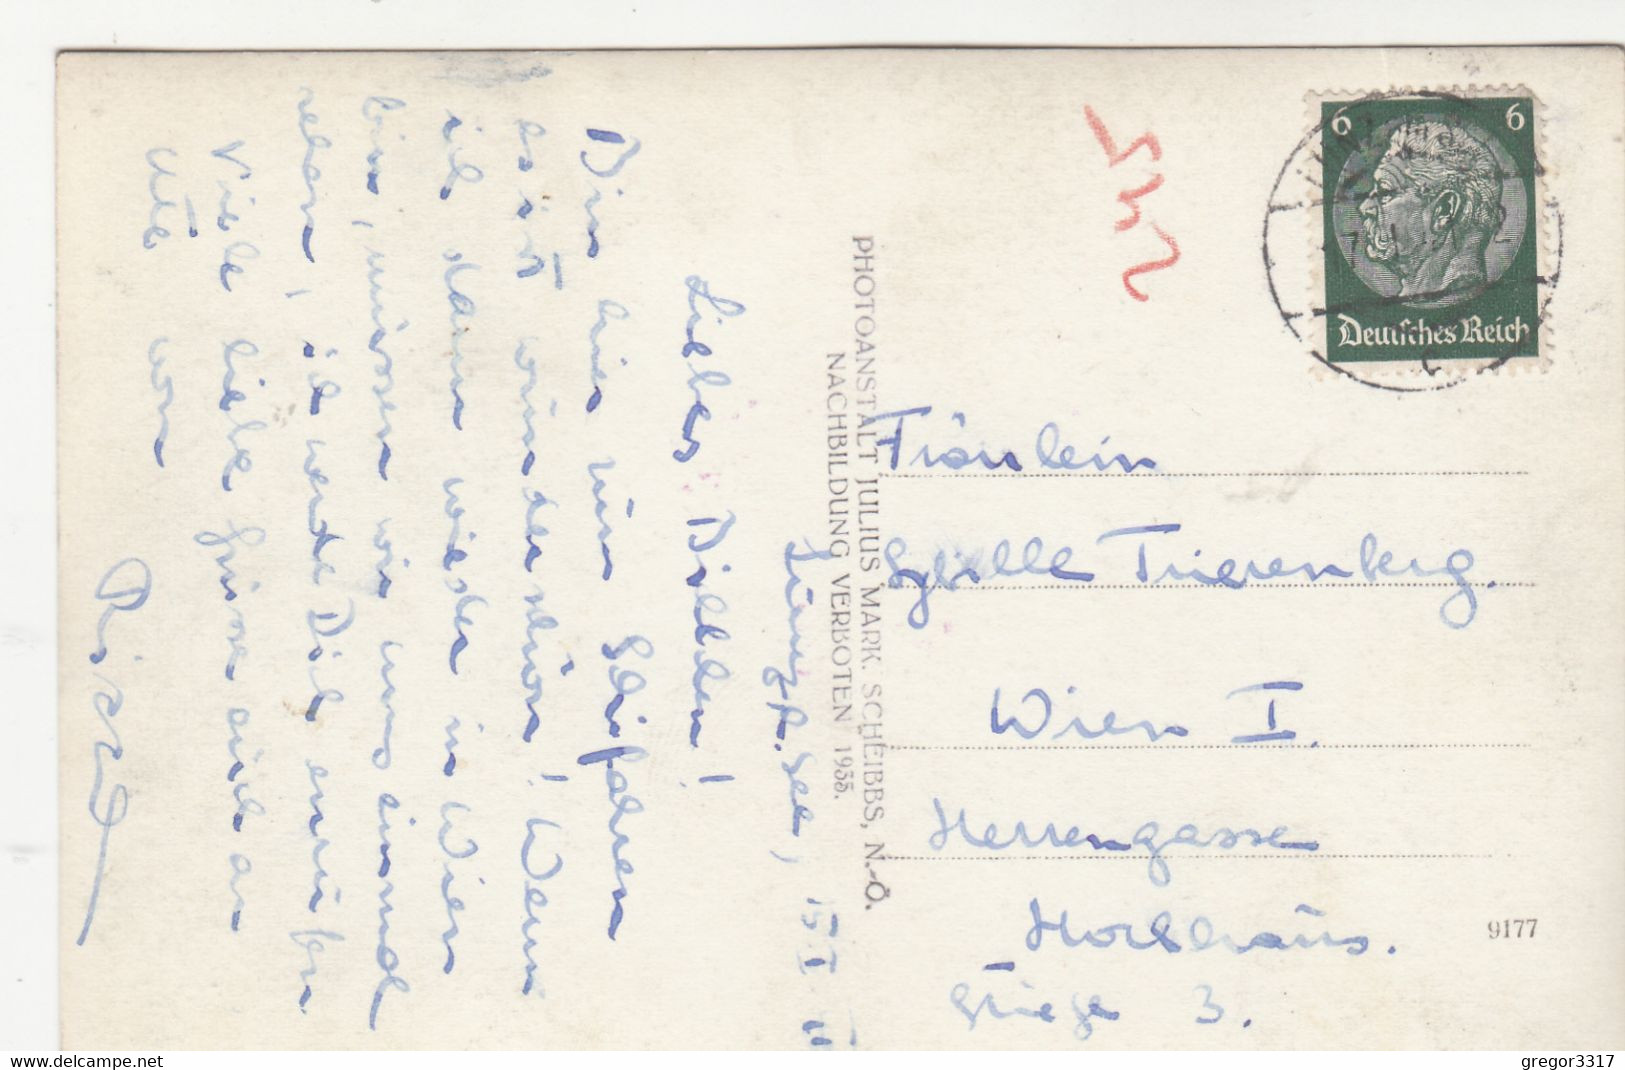 6 6
Deutsches Reich
PHOTOANSTALT JULIUS MARK. SCHEIBBS, N.-Ö.
NACHBILDUNG VERBOTEN 1935.
Fräulein
Trierenberg.
Wien I.
Herrengasse
Hochhaus.
Stiege 3.
9177
Lunz a. See, 15. I.
Liebes
Bin hier zum Skifahren
es ist wunderschön! Wenn
ich dann wieder in Wien
bin, müssen wir uns einmal
sehen, ich werde Dich anrufen
Viele liebe Grüsse auch an
von
gregor3317
delcampe.net